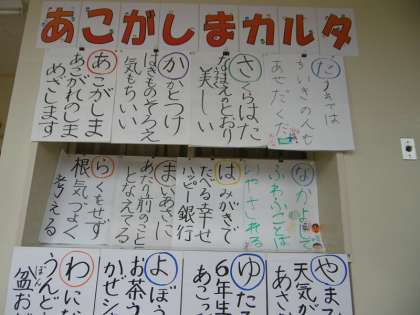 あこがしまカルタ
あこがしま
あこがれのしま
めざします
かかとつけ
はきものそろえ
気もちいい
さくらはた
なのはんのとおり
美しい
あせだくだ
なかよしで
ふわふわことば
はみがきで
たべる幸せ
ハッピー銀行
まいあさに
あたり前のこと
となえてる
らくをせず
根気づよく
考える
やま
天気が
あさ
ゆた
6年生
あこっ
よぼう
お茶う
かぜシャ
わにな
うんど
盆お
ぼん